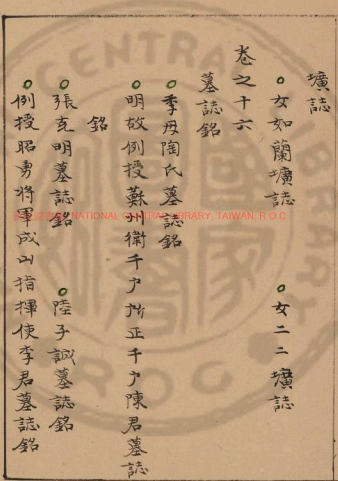 壙誌
女如蘭壙誌 女二二壙誌
卷之十六
墓誌銘
季母陶氏墓誌銘
明故例授蘇州衛千户所正千户陳君墓誌
銘
張克明墓誌銘 陸子誠墓誌銘
例授昭勇將軍成山指揮使李君墓誌銘
NATIONAL CENTRAL LIBRARY, TAIWAN, R.O.C